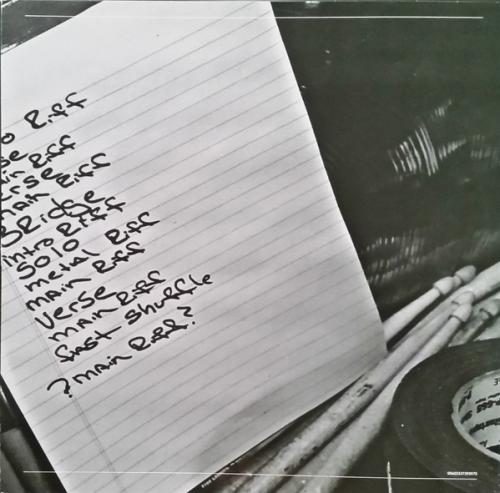 o Riff
se
ain Riff
erse
main Riff
Bridge
intro Riff
Solo
metal Riff
main Riff
Verse
main Riff
fast shuffle
?main Riff?